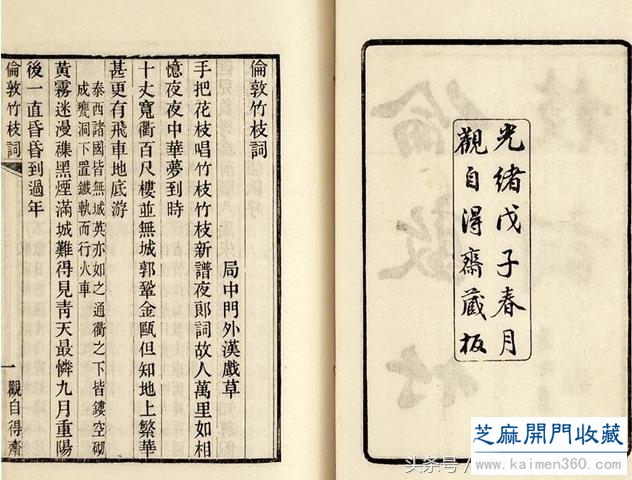 光緒戊子春月
觀自得齋藏板
倫敦竹枝詞
局中門外漢戲草
手把花枝唱竹枝竹枝新譜夜郎詞故人萬里如相
憶夜夜中華夢到時
十丈寬衢百尺樓並無城郭鞏金甌但知地上繁華
甚更有飛車地底游
泰西諸國皆無城英亦如之通衢之下皆鏤空砌
成甕洞下置鐵軌而行火車
黃霧迷漫襍黑煙滿城難得見靑天最憐九月重陽
後一直昏昏到過年
倫敦竹枝詞
一 觀自得齋
头条号/
芝麻開門收藏
www.kaimen360.com